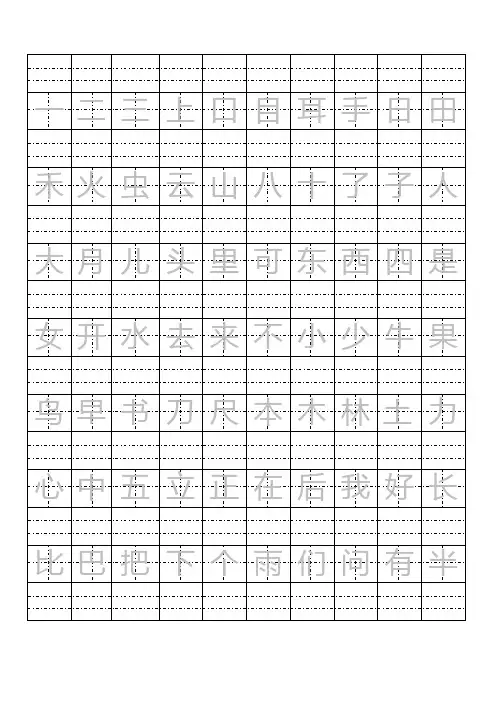 一 二 三 上 口 目 耳 手 日 田
禾 火 虫 云 山 八 十 了 子 人
大 月 儿 头 里 可 东 西 四 是
女 开 水 去 来 不 小 少 牛 果
鸟 早 书 刀 尺 本 木 林 土 力
心 中 五 立 正 在 后 我 好 长
比 巴 把 下 个 雨 们 问 有 半